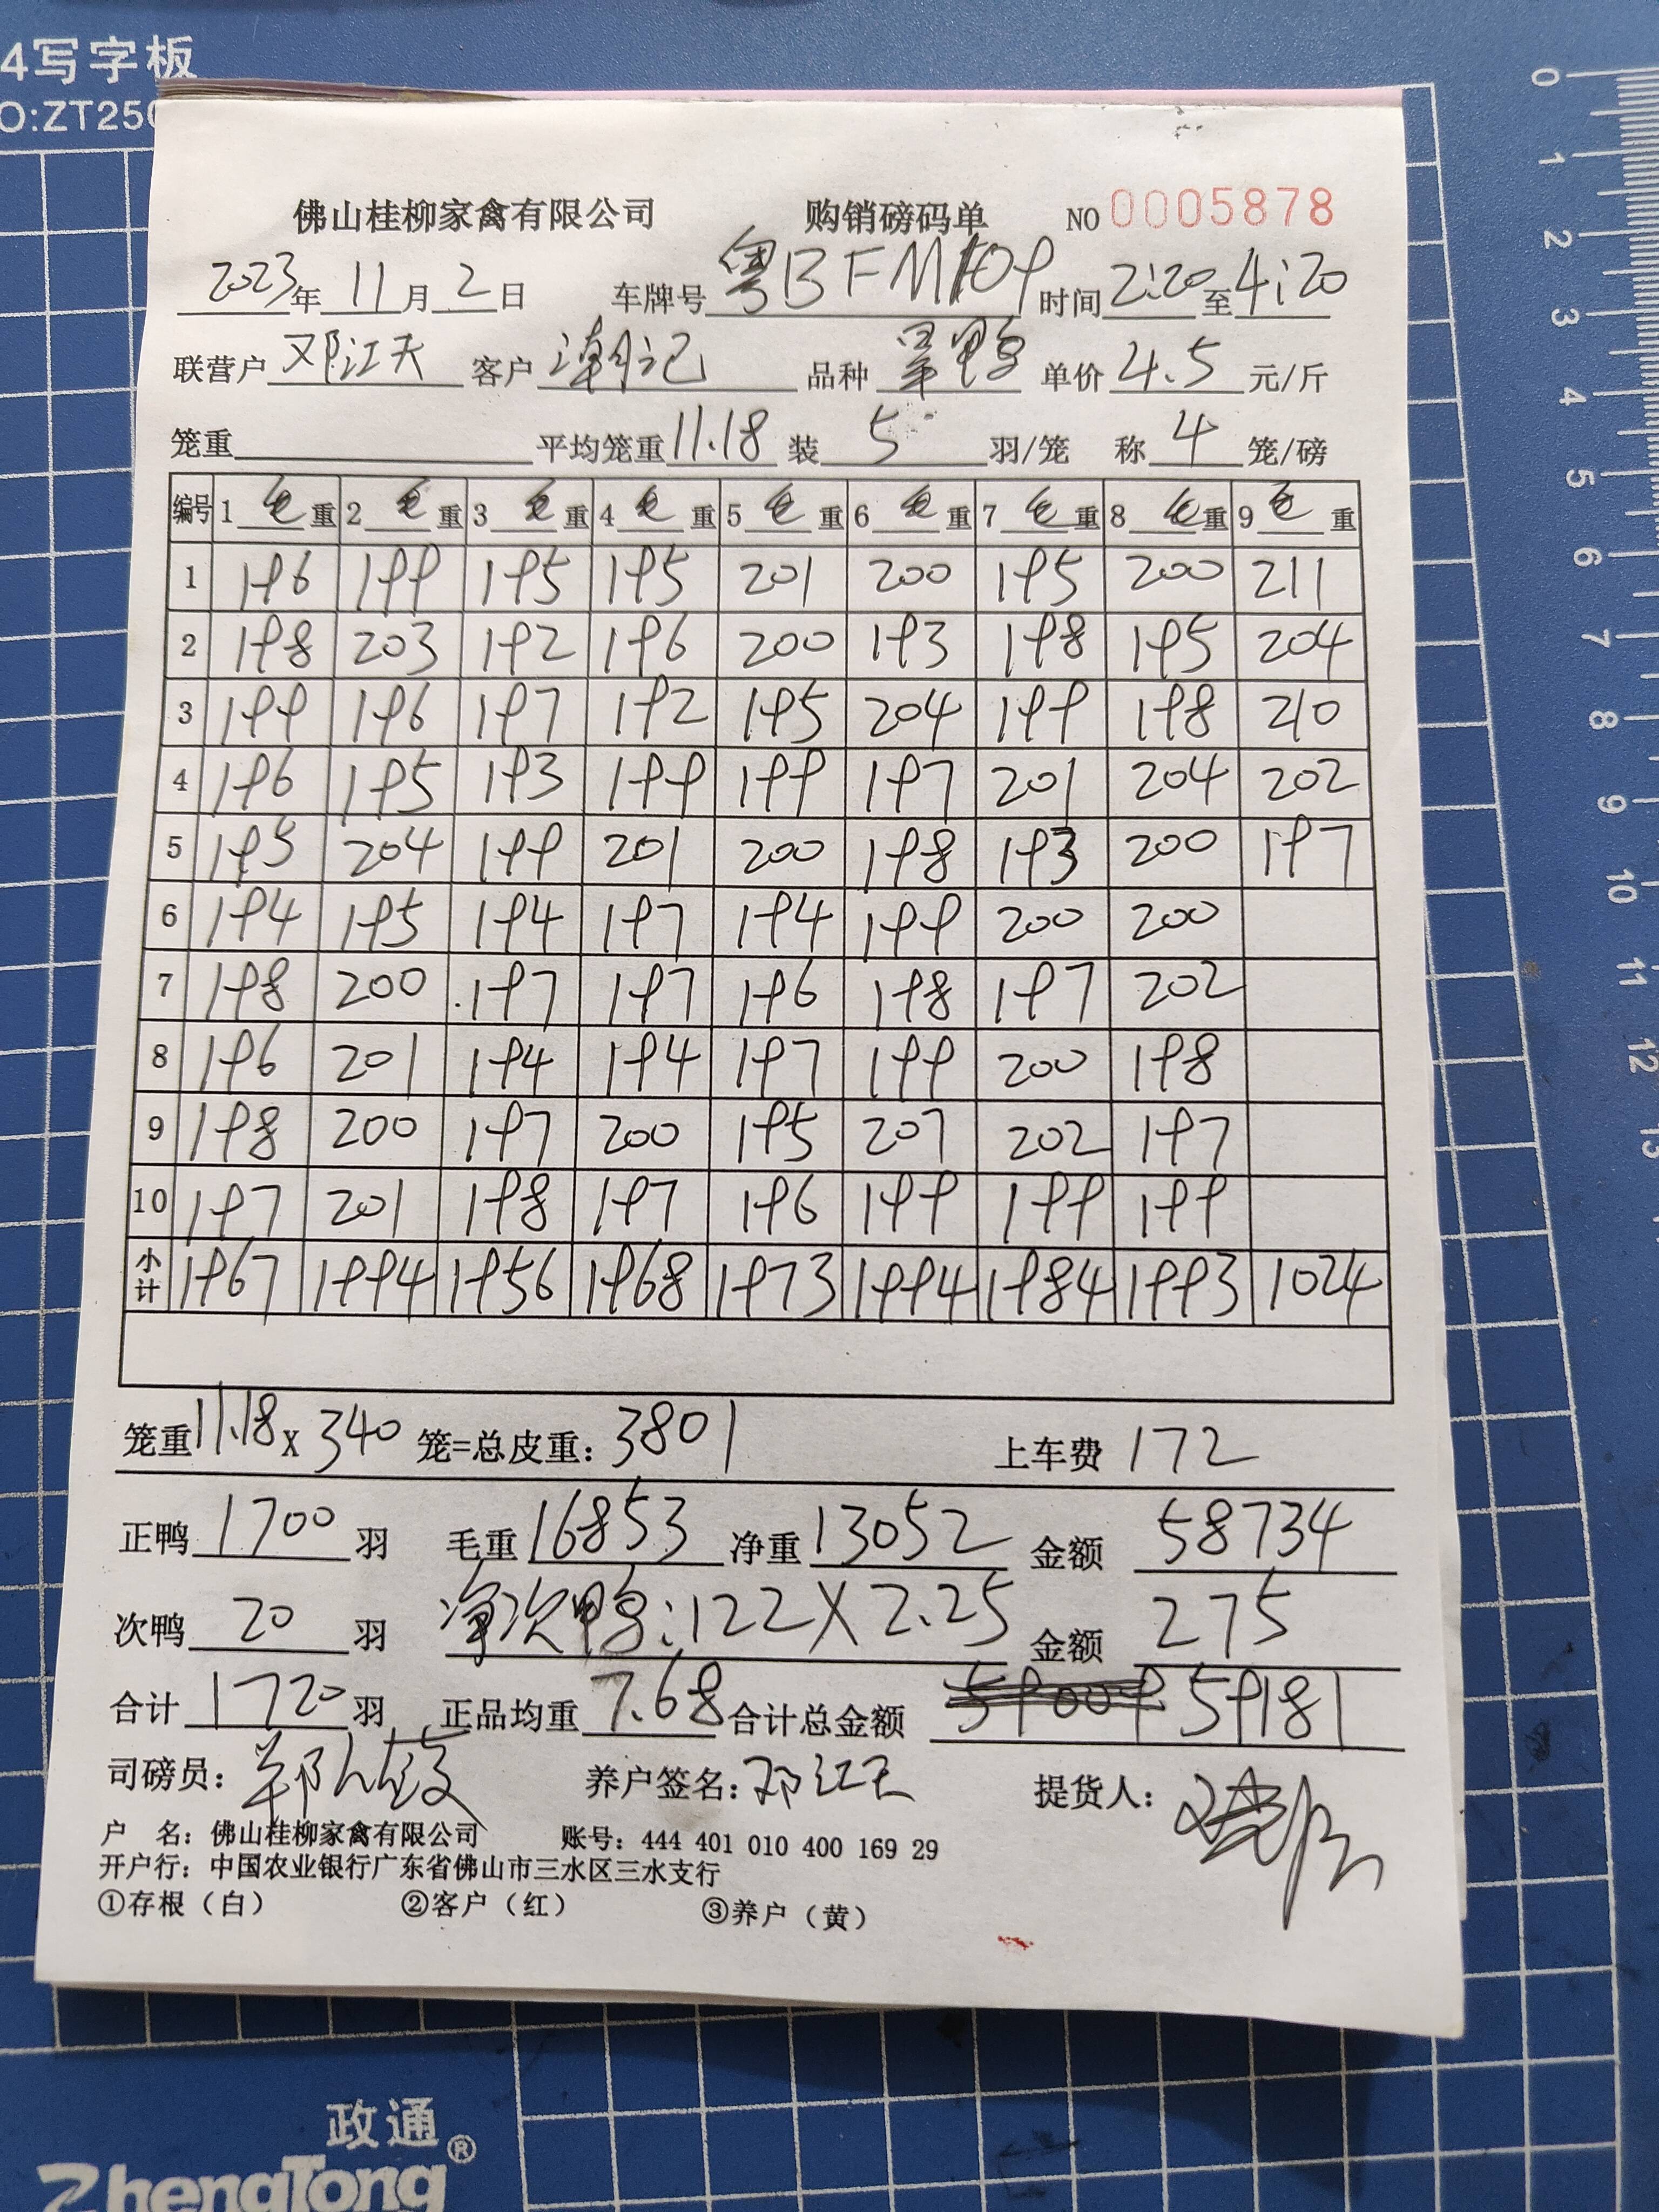 4写字板
O:ZT250
佛山桂柳家禽有限公司 购销磅码单 NO 0005878
2023年 11月 2日 车牌号 粤BFM109 时间 2:20 至 4:20
联营户 邓江天 客户 潮记 品种 单价 4.5 元/斤
笼重 平均笼重 11.18 装 5 羽/笼 称 4 笼/磅
编号 1 毛 重 2 毛 重 3 毛 重 4 毛 重 5 毛 重 6 毛 重 7 毛 重 8 毛 重 9 毛 重
1 196 199 195 195 201 200 195 200 211
2 198 203 192 196 200 193 198 195 204
3 199 196 197 192 195 204 199 198 210
4 196 195 193 199 199 197 201 204 202
5 195 204 199 201 200 198 193 200 197
6 194 195 194 197 194 199 200 200
7 198 200 197 197 196 198 197 202
8 196 201 194 194 197 199 200 198
9 198 200 197 200 195 207 202 197
10 197 201 198 197 196 199 199 199
小计 1967 1994 1956 1968 1973 1994 1984 1993 1024
笼重 11.18 x 340 笼=总皮重: 3801 上车费 172
正鸭 1700 羽 毛重 16853 净重 13052 金额 58734
次鸭 20 羽 净次鸭:122X2.25 金额 275
合计 1720 羽 正品均重 7.68 合计总金额 59009 59181
司磅员: 养户签名: 邓江天 提货人:
户 名: 佛山桂柳家禽有限公司 账号: 444 401 010 400 169 29
开户行: 中国农业银行广东省佛山市三水区三水支行
①存根（白） ②客户（红） ③养户（黄）
政通
ZhengTong®
0
1
2
3
4
5
6
7
8
9
10
11
12
13